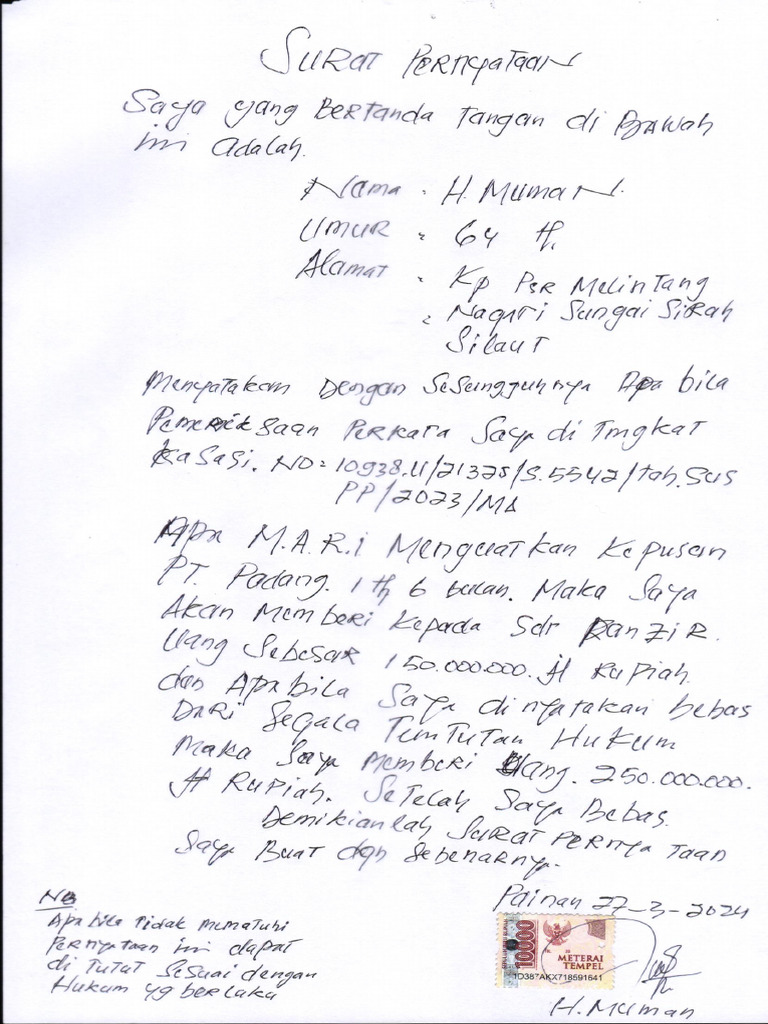 SURAT PERNYATAAN
Saya yang BERTanda Tangan di BAWah
ini adalah.
Nama : H. MUMAN.
UMUR : 64 th.
Alamat : Kp PSR Melintang
: Nagari Sungai Sirah
Silaut
Menyatakan Dengan Sesungguhnya Apa bila
Pemeriksaan Perkara Saya di Tingkat
Kasasi. NO = 10938.U/21325/S.5542/tah.Sus
PP/2023/MA
Apa M.A.R.i Menguatkan Kepusan
PT. Padang. 1 th 6 bulan. Maka Saya
Akan Memberi Kepada Sdr Danzir.
Uang Sebesar 150.000.000. Jt Rupiah.
dan Apabila Saya dinyatakan bebas
Dari Segala Tuntutan Hukum
Maka Saya Memberi Uang. 250.000.000.
Jt Rupiah. Setelah Saya Bebas.
Demikianlah Surat Pernyataan
Saya Buat dgn Sebenarnya.
Painan 27-3-2024
NB
Apa bila Tidak Mematuhi
Pernyataan ini dapat
di Tutut Sesuai dengan
Hukum yg berlaku
10000
METERAI
TEMPEL
1D387AKX718591641
H. Muman